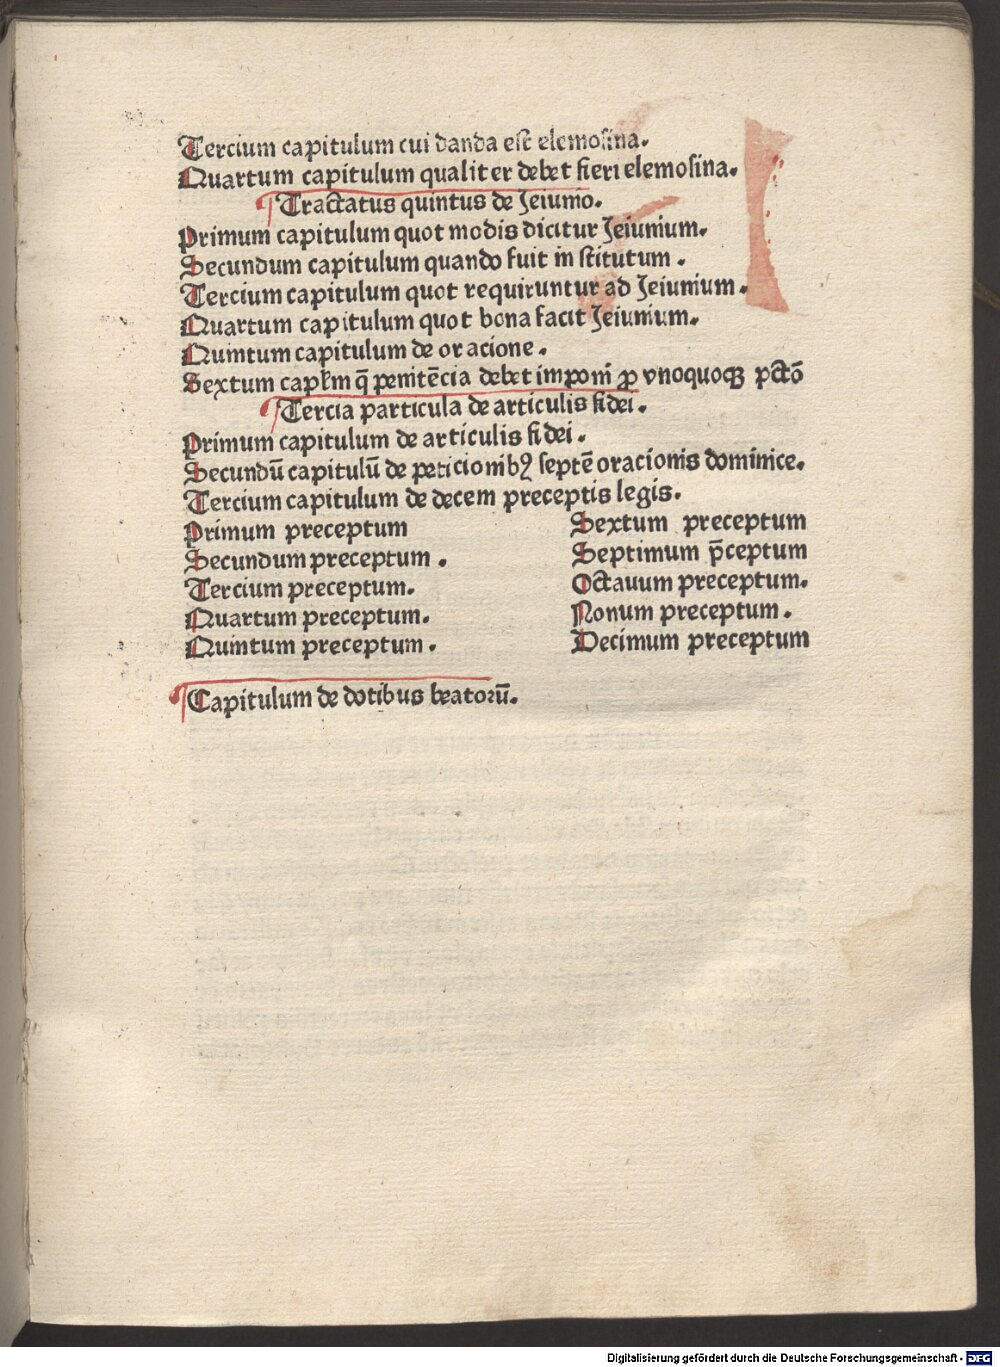 Tercium capitulum cui danda est elemosina.
Quartum capitulum qualiter debet fieri elemosina.
Tractatus quintus de Jeiunio.
Primum capitulum quot modis dicitur Jeiunium.
Secundum capitulum quando fuit institutum.
Tercium capitulum quot requiruntur ad Jeiunium.
Quartum capitulum quot bona facit Jeiunium.
Quintum capitulum de oracione.
Sextum capłm q̄ penitēcia debet imponi ꝓ vnoquoqꝫ pctō
Tercia particula de articulis fidei.
Primum capitulum de articulis fidei.
Secundū capitulū de peticionibꝰ septē oracionis dominice.
Tercium capitulum de decem preceptis legis.
Primum preceptum
Secundum preceptum.
Tercium preceptum.
Quartum preceptum.
Quintum preceptum.
Sextum preceptum
Septimum p̄ceptum
Octauum preceptum.
Nonum preceptum.
Decimum preceptum
Capitulum de dotibus beatorū.
Digitalisierung gefördert durch die Deutsche Forschungsgemeinschaft - DFG